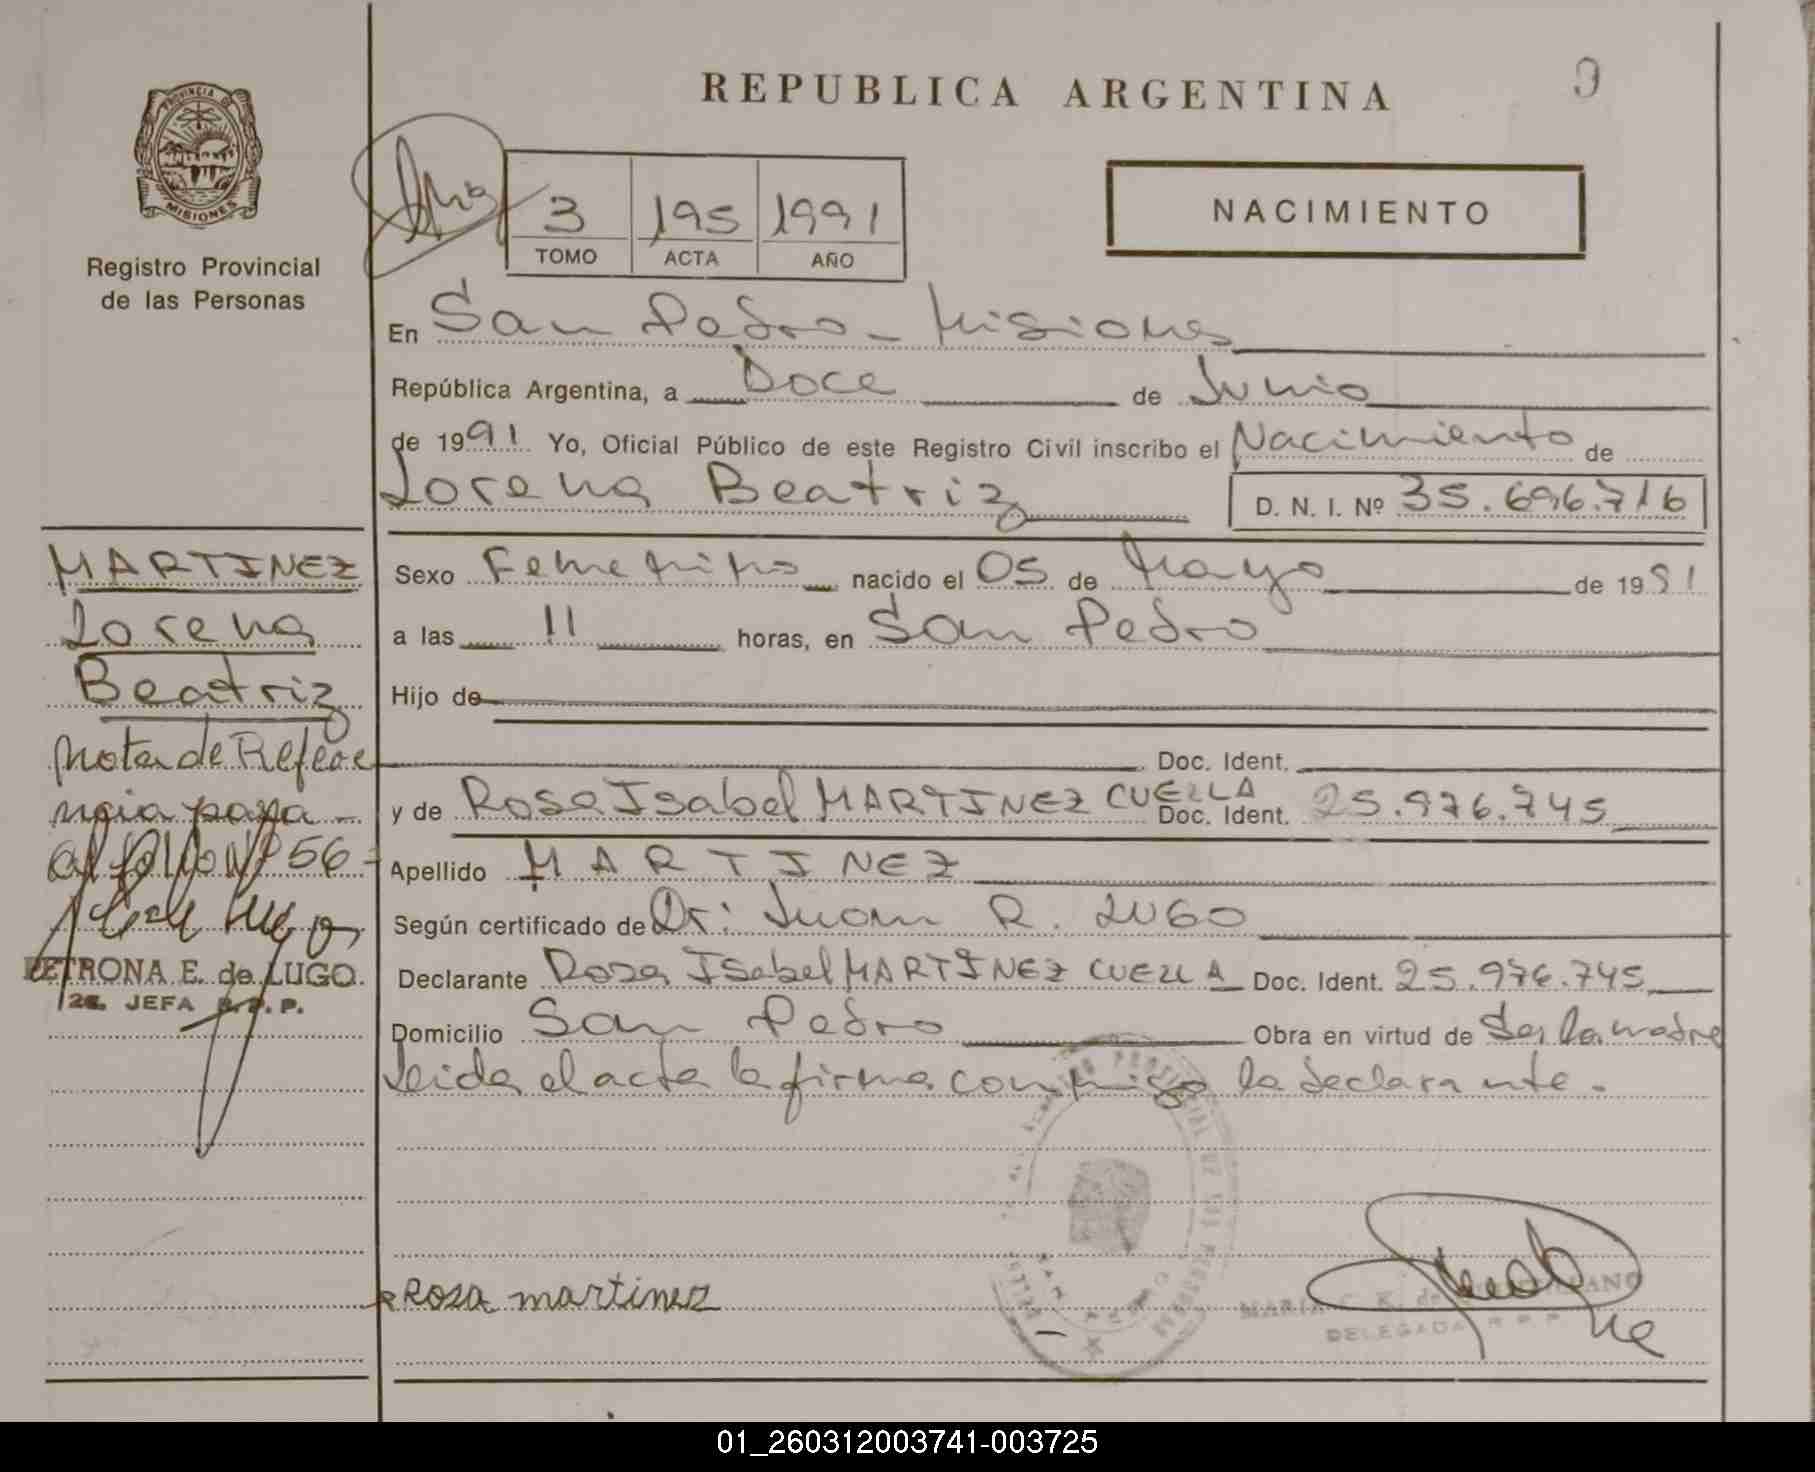 REPUBLICA ARGENTINA
PROVINCIA DE
MISIONES
Registro Provincial
de las Personas
3 195 1991
TOMO ACTA AÑO
NACIMIENTO
En San Pedro - Misiones
República Argentina, a Doce de Junio
de 1991. Yo, Oficial Público de este Registro Civil inscribo el Nacimiento de
Lorena Beatriz D. N. I. Nº 35.696.716
Sexo Femenino nacido el 05 de Mayo de 1991
a las 11 horas, en San Pedro
Hijo de
Doc. Ident.
y de Rosa Isabel MARTINEZ CUELLA Doc. Ident. 25.976.745
Apellido MARTINEZ
Según certificado de Dr: Juan R. LUGO
Declarante Rosa Isabel MARTINEZ CUELLA Doc. Ident. 25.976.745
Domicilio San Pedro Obra en virtud de Ser la madre
Leida el acta la firma conmigo la declarante.
MARTINEZ
Lorena
Beatriz
Nota de Refere
ncia pasa
al folio Nº 56
PETRONA E. de LUGO
JEFA R.P.P.
Rosa martinez
MARIA C. K. de
DELEGADA R.P.P.
01_260312003741-003725